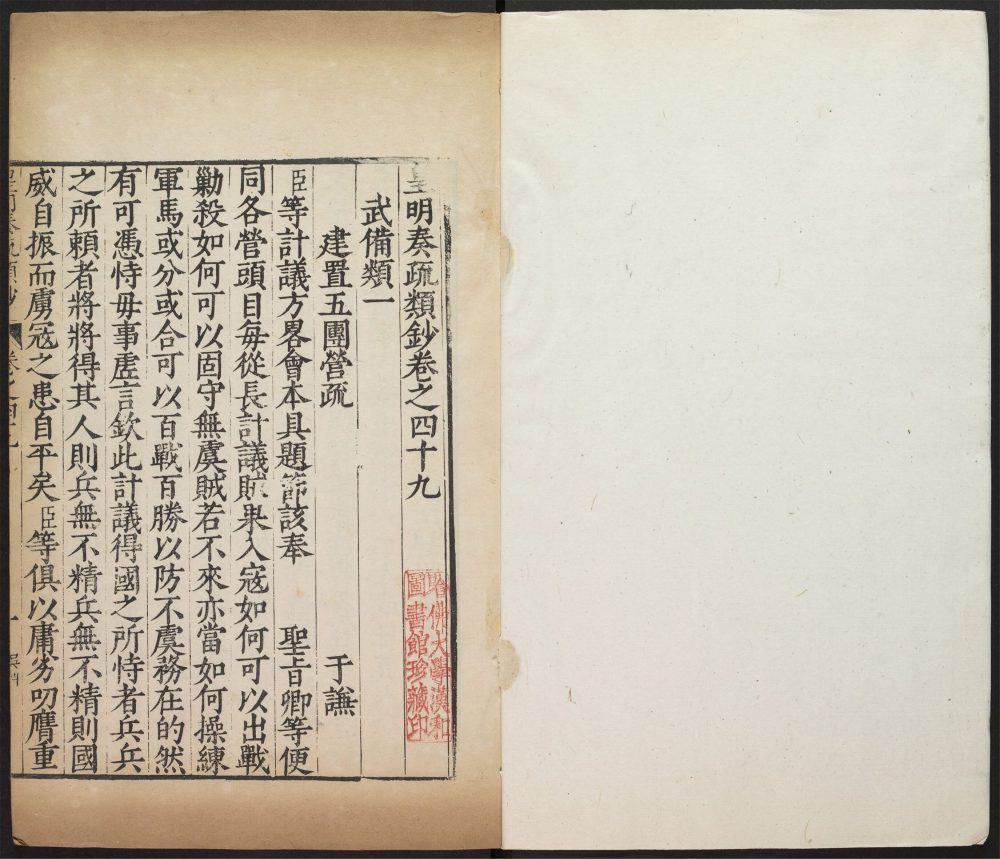 皇明奏疏類鈔卷之四十九
武備類一
建置五團營疏 于謙
臣等計議方畧會本具題節該奉 聖旨卿等便
同各營頭目每從長計議賊果入寇如何可以出戰
勦殺如何可以固守無虞賊若不來亦當如何操練
軍馬或分或合可以百戰百勝以防不虞務在的然
有可憑恃毋事虛言欽此計議得國之所恃者兵兵
之所賴者將將得其人則兵無不精兵無不精則國
威自振而虜寇之患自平矣臣等俱以庸劣叨膺重
哈佛大學漢和
圖書館珍藏印